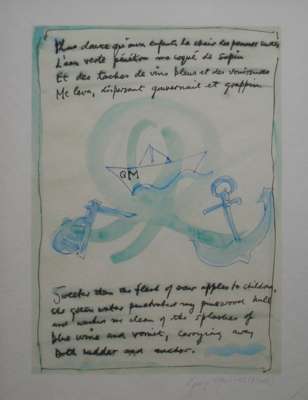 Plus douce qu'aux enfants la chair des pommes sures
L'eau verte pénétra ma coque de sapin
Et des taches de vins bleus et des vomissures
Me lava, dispersant gouvernail et grappin
QM
Sweeter than the flesh of sour apples to children,
the green water penetrated my pinewood hull
and washed me clean of the splashes of
blue wine and vomit, carrying away
both rudder and anchor.